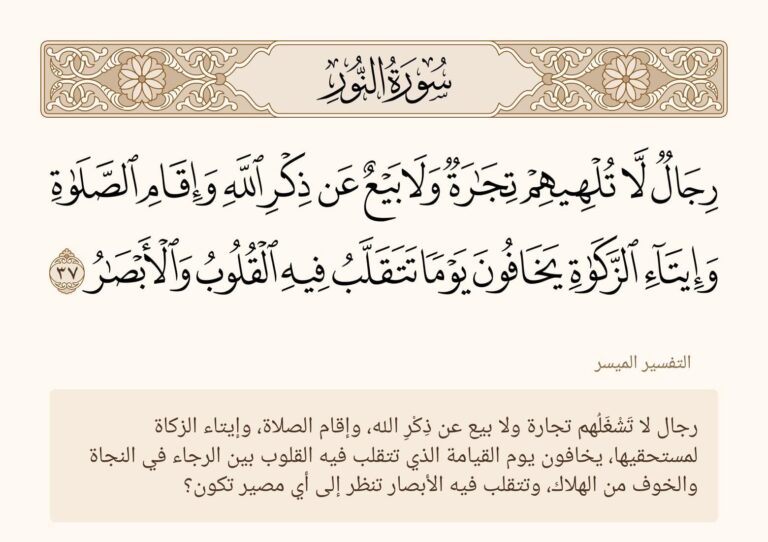 سُورَةُ النُّورِ
رِجَالٌ لَّا تُلْهِيهِمْ تِجَٰرَةٌ وَلَا بَيْعٌ عَن ذِكْرِ ٱللَّهِ وَإِقَامِ ٱلصَّلَوٰةِ
وَإِيتَآءِ ٱلزَّكَوٰةِ يَخَافُونَ يَوْمًا تَتَقَلَّبُ فِيهِ ٱلْقُلُوبُ وَٱلْأَبْصَٰرُ ٣٧
التفسير الميسر
رجال لا تَشْغَلُهم تجارة ولا بيع عن ذِكْرِ الله، وإقام الصلاة، وإيتاء الزكاة
لمستحقيها، يخافون يوم القيامة الذي تتقلب فيه القلوب بين الرجاء في النجاة
والخوف من الهلاك، وتتقلب فيه الأبصار تنظر إلى أي مصير تكون؟